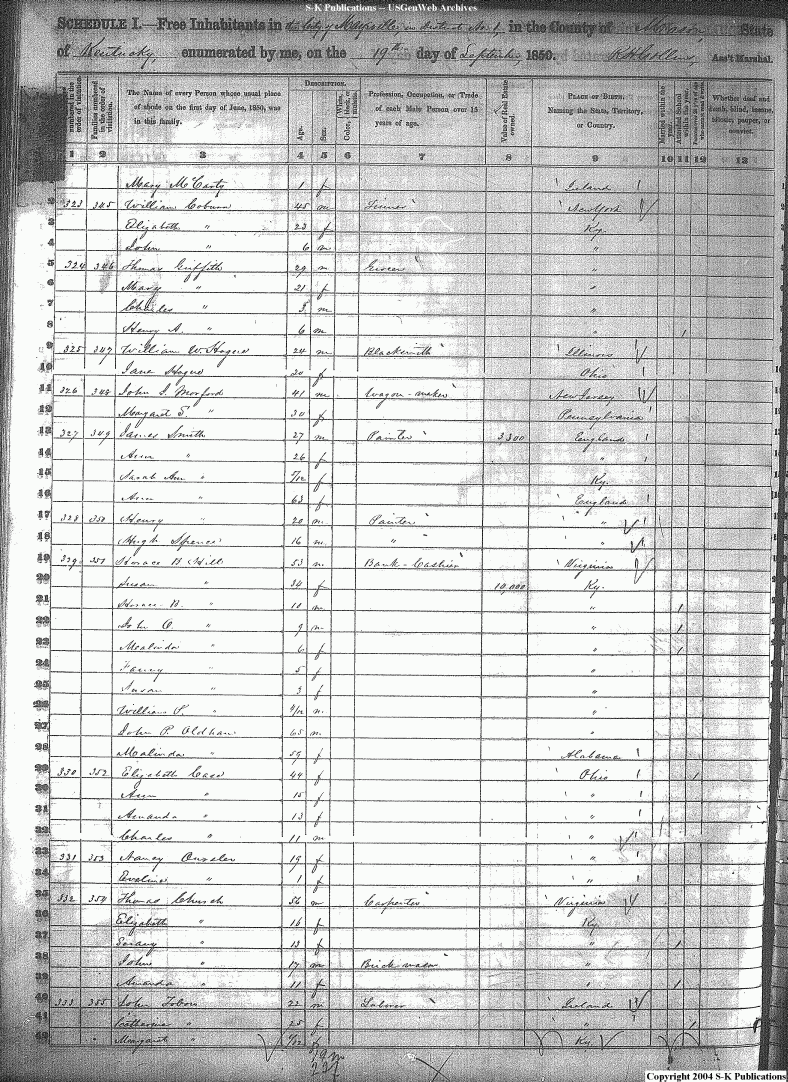 S-K Publications -- USGenWeb Archives
SCHEDULE I.—Free Inhabitants in the City of Maysville, in district No. 1, in the County of Mason State
of Kentucky enumerated by me, on the 19th day of September, 1850. Ass't Marshal.
The Name of every Person whose usual place of abode on the first day of June, 1850, was in this family.
DESCRIPTION.
Age. Sex.
Profession, Occupation, or Trade of each Male Person over 15 years of age.
Value of Real Estate owned.
PLACE OF BIRTH. Naming the State, Territory, or Country.
Whether deaf and dumb, blind, insane, idiotic, pauper, or convict.
1 2 3 4 5 6 7 8 9 10 11 12 13
Mary McCarty 1 f Ireland
2 323 345 William Coburn 45 m New York
3 Elizabeth " 23 f Ky.
4 John " 6 m "
5 324 346 Thomas Griffith 29 m Grocer "
6 Mary " 21 f "
7 Charles " 3 m "
8 Henry A. " 6 m " 1
9 325 347 William W. 24 m Blacksmith Illinois
10 Jane 20 f Ohio
11 326 348 John S. Morford 41 m Wagon-maker New Jersey
12 Margaret S. " 30 f Pennsylvania
13 327 349 James Smith 27 m Painter 3,300 England
14 Ann " 26 f "
15 Sarah Ann " 7/12 f Ky.
16 Ann " 63 f England
17 328 350 Henry " 20 m Painter "
18 Hugh Spence 16 m " "
19 329 351 Horace B Hill 53 m Bank-Cashier Virginia
20 Susan " 34 f 10,000 Ky.
21 Horace B. " 10 m " 1
22 John O. " 9 m " 1
23 Malinda " 6 f " 1
24 Fanny " 5 f "
25 Susan " 3 f "
26 William " m "
27 John P. Oldham 65 m "
28 Malinda " 59 f Alabama
29 330 352 Elizabeth Case 44 f Ohio 1
30 Ann " 15 f "
31 Amanda " 13 f "
32 Charles " 11 m "
33 331 353 Nancy 19 f "
34 Eveline " 1 f "
35 332 354 Thomas Church 56 m Carpenter Virginia
36 Elizabeth " 16 f Ky.
37 " 13 f " 1
38 John " 17 m Brick-mason "
39 Amanda " 11 f " 1
40 333 355 John 22 m Laborer Ireland
41 Catherine " 25 f " 1
42 " Margaret " f Ky.
19 m
23 f
Copyright 2004 S-K Publications